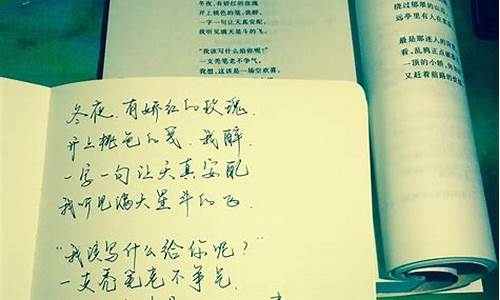 冬夜，有娇红的玫瑰
开上桃色的笺，我醉，
一字一句让天真安配
我听见满天星斗的飞，
“我该写什么给你呢？”
一支秃笔老不争气，
我想，这该是一场空欢喜。
绕过郁翠的山
远亭里有人在
最是那迷人的
看，乱鸦正点
一顶的小轿，
又赶着前路的
冬夜，有娇红的玫瑰
开上桃色的笺，我醉，
一字一句让天真安配
我听见满天星斗的飞
“我该写什么给你呢？”
一支秃笔老不争气